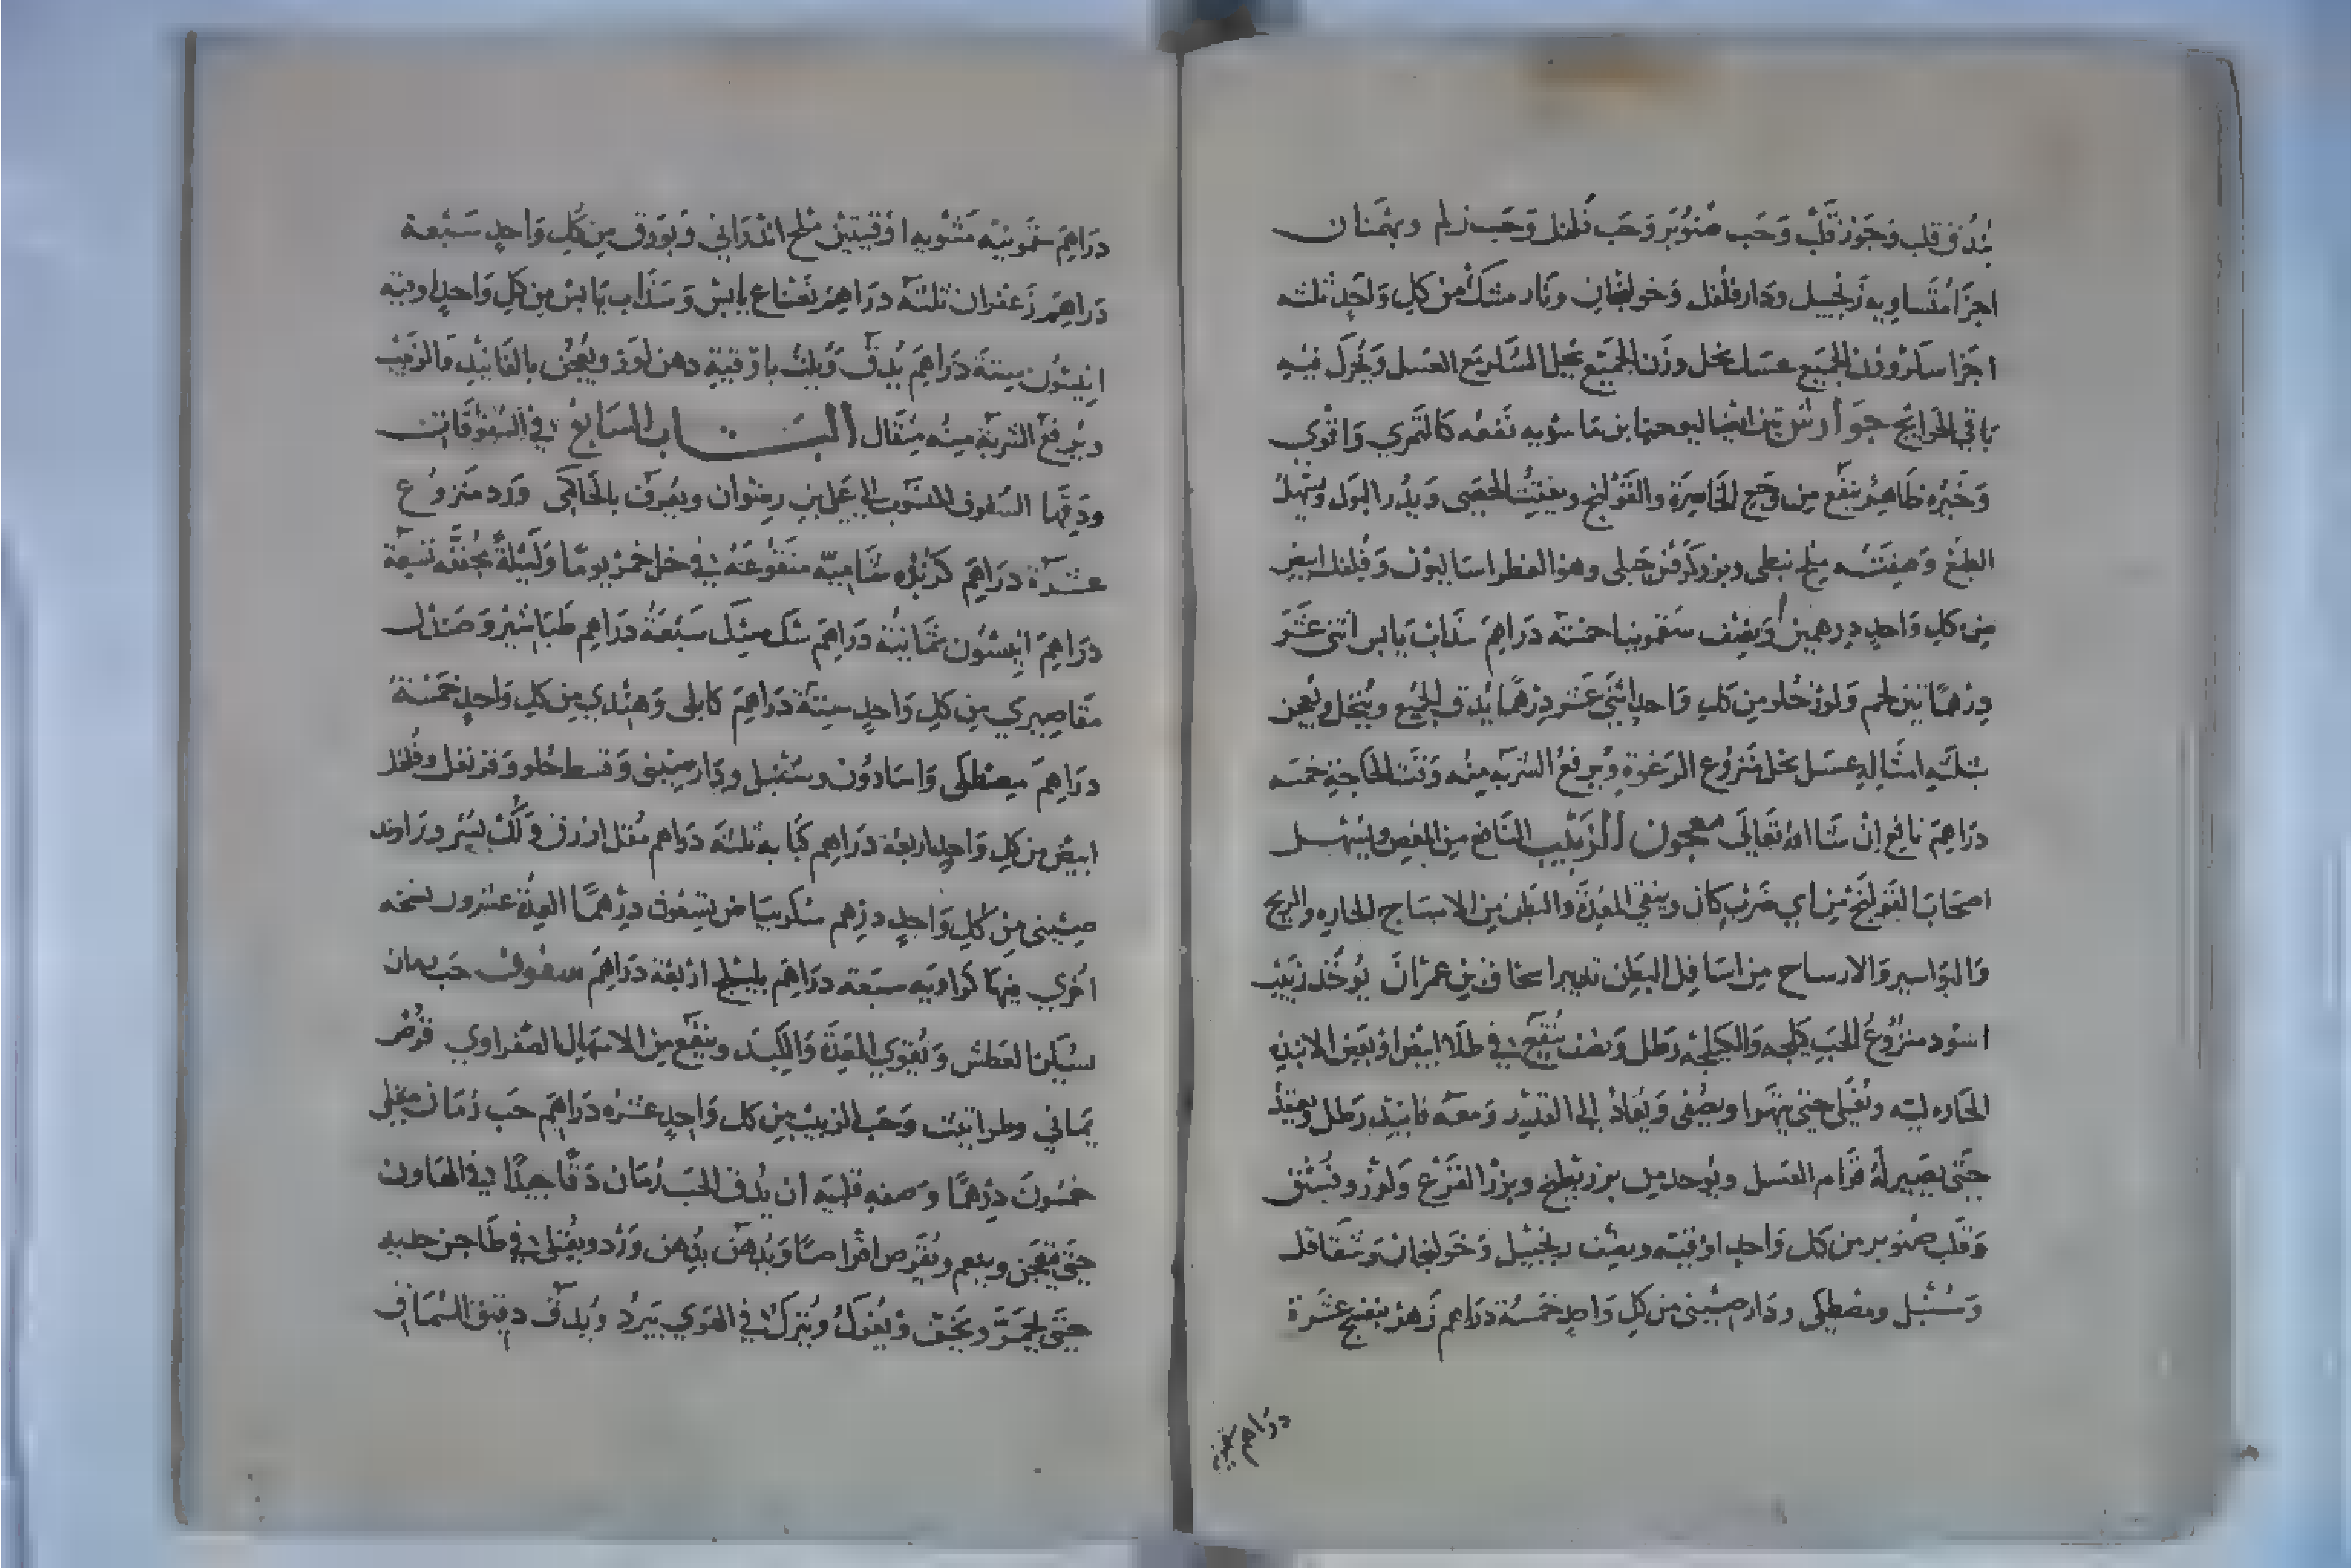 بُندُق قلب وَجَوْز قَلْب وَحَب صُنوُبَر وَحَب فُلفل وَحَب زلم وبهْمَنان
اجزَا مُتسَاوِيه زَنجبيل ودَار فلفل وَخولنجان ونَار مشك مِن كلِ وَاحِدٍ ثلثه
اجزا سكر وَزن الجَميع عسَل نحل وزن الجميْع يحل السُّكر مَع العَسل وَيُترك فيهِ
بَاقي الحَوايج جوَارش تين ايضًا ليوحنا بن مَاسوَيه نَفعُه كالتَمري وَاقوي
وَخبْره ظاهِر ينفَع مِن وَجَع الخَاصِرَة والقَوْلنج ويفتِّت الحصَى وَيدُر البَول ويُسْهل
البلغَم وَصِفَتُه ملح نبطى وبزر كرَفْس جَبلى وهوَ الفطراساليُون وَفلفل ابيض
مِن كلِ وَاحدٍ درهمين وَنِصْف سَقمونيا خمسَة دَرَاهِمَ سَذابْ يَابس اثنى عَشَر
دِرْهمًا تين لحم وَلوز حُلو مِن كلِ وَاحدٍ اثنَى عَشَر دِرْهمًا يُدَق الجَميع ويُنخل ويُعجن
بثلثةِ امثالِهِ عسَل نحل مَنزوُع الرَغوةِ وَيُرفعُ الشربَه منِهُ وَقت الحَاجَةِ خمسَه
دَرَاهِمَ نافِع اِنْ شَا اللهُ تعَالَى معجون الزَبيْب النَافع مِن المغص ويُسْهل
اصحَابَ القَولنجْ مِن اي ضَرْبٍ كانَ وينقي المعدَة والبَطن مِن الامشاج الحَاره والريح
وَالبوَاسير وَالارياح مِن اسَافِل البَطِن تدبير اسحَاق بن عمْران يُوخَذ زَبيْب
اسْود منزُوعُ الحَبِ كيلجه وَالكيلجه رَطل وَنصف يُنْقَع في طَلا ابيْض اوْ بَعض الانبذهِ
الحَاره ليله ويُغلَى حَتى يتهَرا ويصُفى وَيُعَاد الى القدر وَمعَه فانيْد رَطل ويعقدُ
حَتى يصَير لهُ قوَام العَسل ويُوخذ مِن بزر بطيخ وبزرْ القَرْع وَلوْز وفسْتق
وَقلب صنوبر من كل وَاحدٍ اوْقيَه ونصِف زنجبيل وَخَولنجان وَشقاقل
وَسُنْبل ومصْطكى ودَار صيْنى من كلِ وَاحدٍ خمسَة دَرَاهم زَهرْ بنفسج عشَرة
دَرَاهم
دَرَاهِمَ سَقمونيَه مَشويه اوْقيتين ملح اندَرَاني وَبوَرق مِن كلِ وَاحدٍ سَبْعة
دَرَاهِمَ زَعفرَان ثلثَة دَرَاهِمَ نعنَاع يابسْ وَسَذاب يَابسْ مِن كلِ وَاحدٍ اوقيَه
انيسُون ستة دَرَاهِمَ يُدق وَيُلت باوْقيةِ دهن لوْز ويُعجن بالفَانيْدِ وَالزَبيْب
ويُرفعُ الشربَة منِه مِثقَال البَاب السَابع في السُفوْفَات
ودَقهَا السُفوف المنسُوب الى عَلى بن رضوان ويعُرفُ بالحَاكمى وَرد مَنزوُع
عشرَة دَرَاهِمَ كزبُره شَاميَه مَنقوُعَة في خل خَمر يوَمًا وَليْلةً مجُففَه تسعَة
دَرَاهِمَ انيسُون ثمَانيَة دَرَاهِمَ سُك مِسْك سَبْعَة دَرَاهِم طَبَاشير وَصَندل
مقاصِيري مِن كلِ وَاحدٍ سِتة دَرَاهِمَ كابلى وَهنْدي مِن كلِ وَاحدٍ خمْسَة
دَرَاهِمَ مِصْطكى وَاسَارُون وسُنْبل ودَار صِيْنى وَقسط حُلو وَقرنفل وفُلفل
ابيض مِن كل وَاحدٍ اربعَة دَرَاهِم كبَابه ثلثَة دَرَاهم مُقل ازرق وَلك بُسْر ورَاوند
صيْنى مِن كلِ وَاحدٍ درهم سكر بيَاض تِسعُون درْهمًا العِدة عشرُون نسخه
اخري فيهَا كرَاويَه سبعَة دَرَاهم بليْلج ارْبعَة دَرَاهِمَ سفوف حَب رمان
يسكن العَطش وَيُقوَي المعدَة وَالكبد وينفَع مِن الاسهَال الصَفراوي قرض
يمَاني وطراثيْث وَحَب الزبيْب مِن كل وَاحدٍ عشَره دَرَاهِمَ حَب رُمَان مقلى
خمسُونَ درْهمًا وَصفة قليَه ان يُدق الحَب رُمَان دَقًا جيدًا في الهَاون
حَتى يَنعَجن وينعم ويُقرَص اقرَاصًا وَيُدهَن بدُهن وَرْد ويُقلى في طَاجن حَديد
حَتى يحمَرّ وَيجَف وَيُفرَك ويُترَك في الهَوي يَبرُد ويُدَق دقيق السُماق